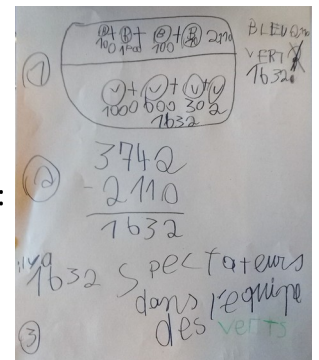 ①
B+B+B+B 2110
BLEU 2110
VERT
1632
V+V+V+V
1000 600 30 2
1632
②
3742
- 2110
1632
③
il y a
1632 spectateurs
dans l'equipe
des verts
: